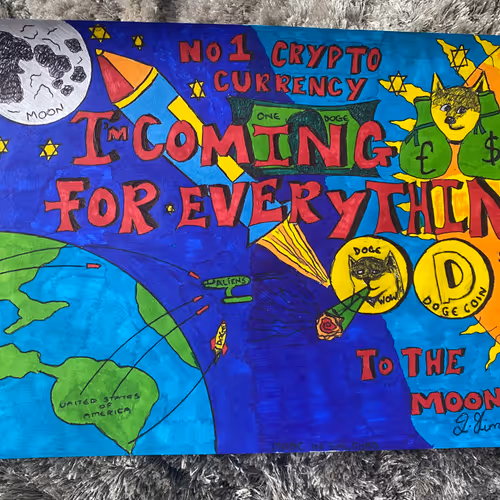 NO 1 CRYPTO
CURRENCY
MOON
ONE DOGE
I'm COMING
£ $
FOR EVERYTHIN
DOGE
WOW
D
DOGE COIN
ALIENS
TO THE
MOON
UNITED STATES
OF
AMERICA